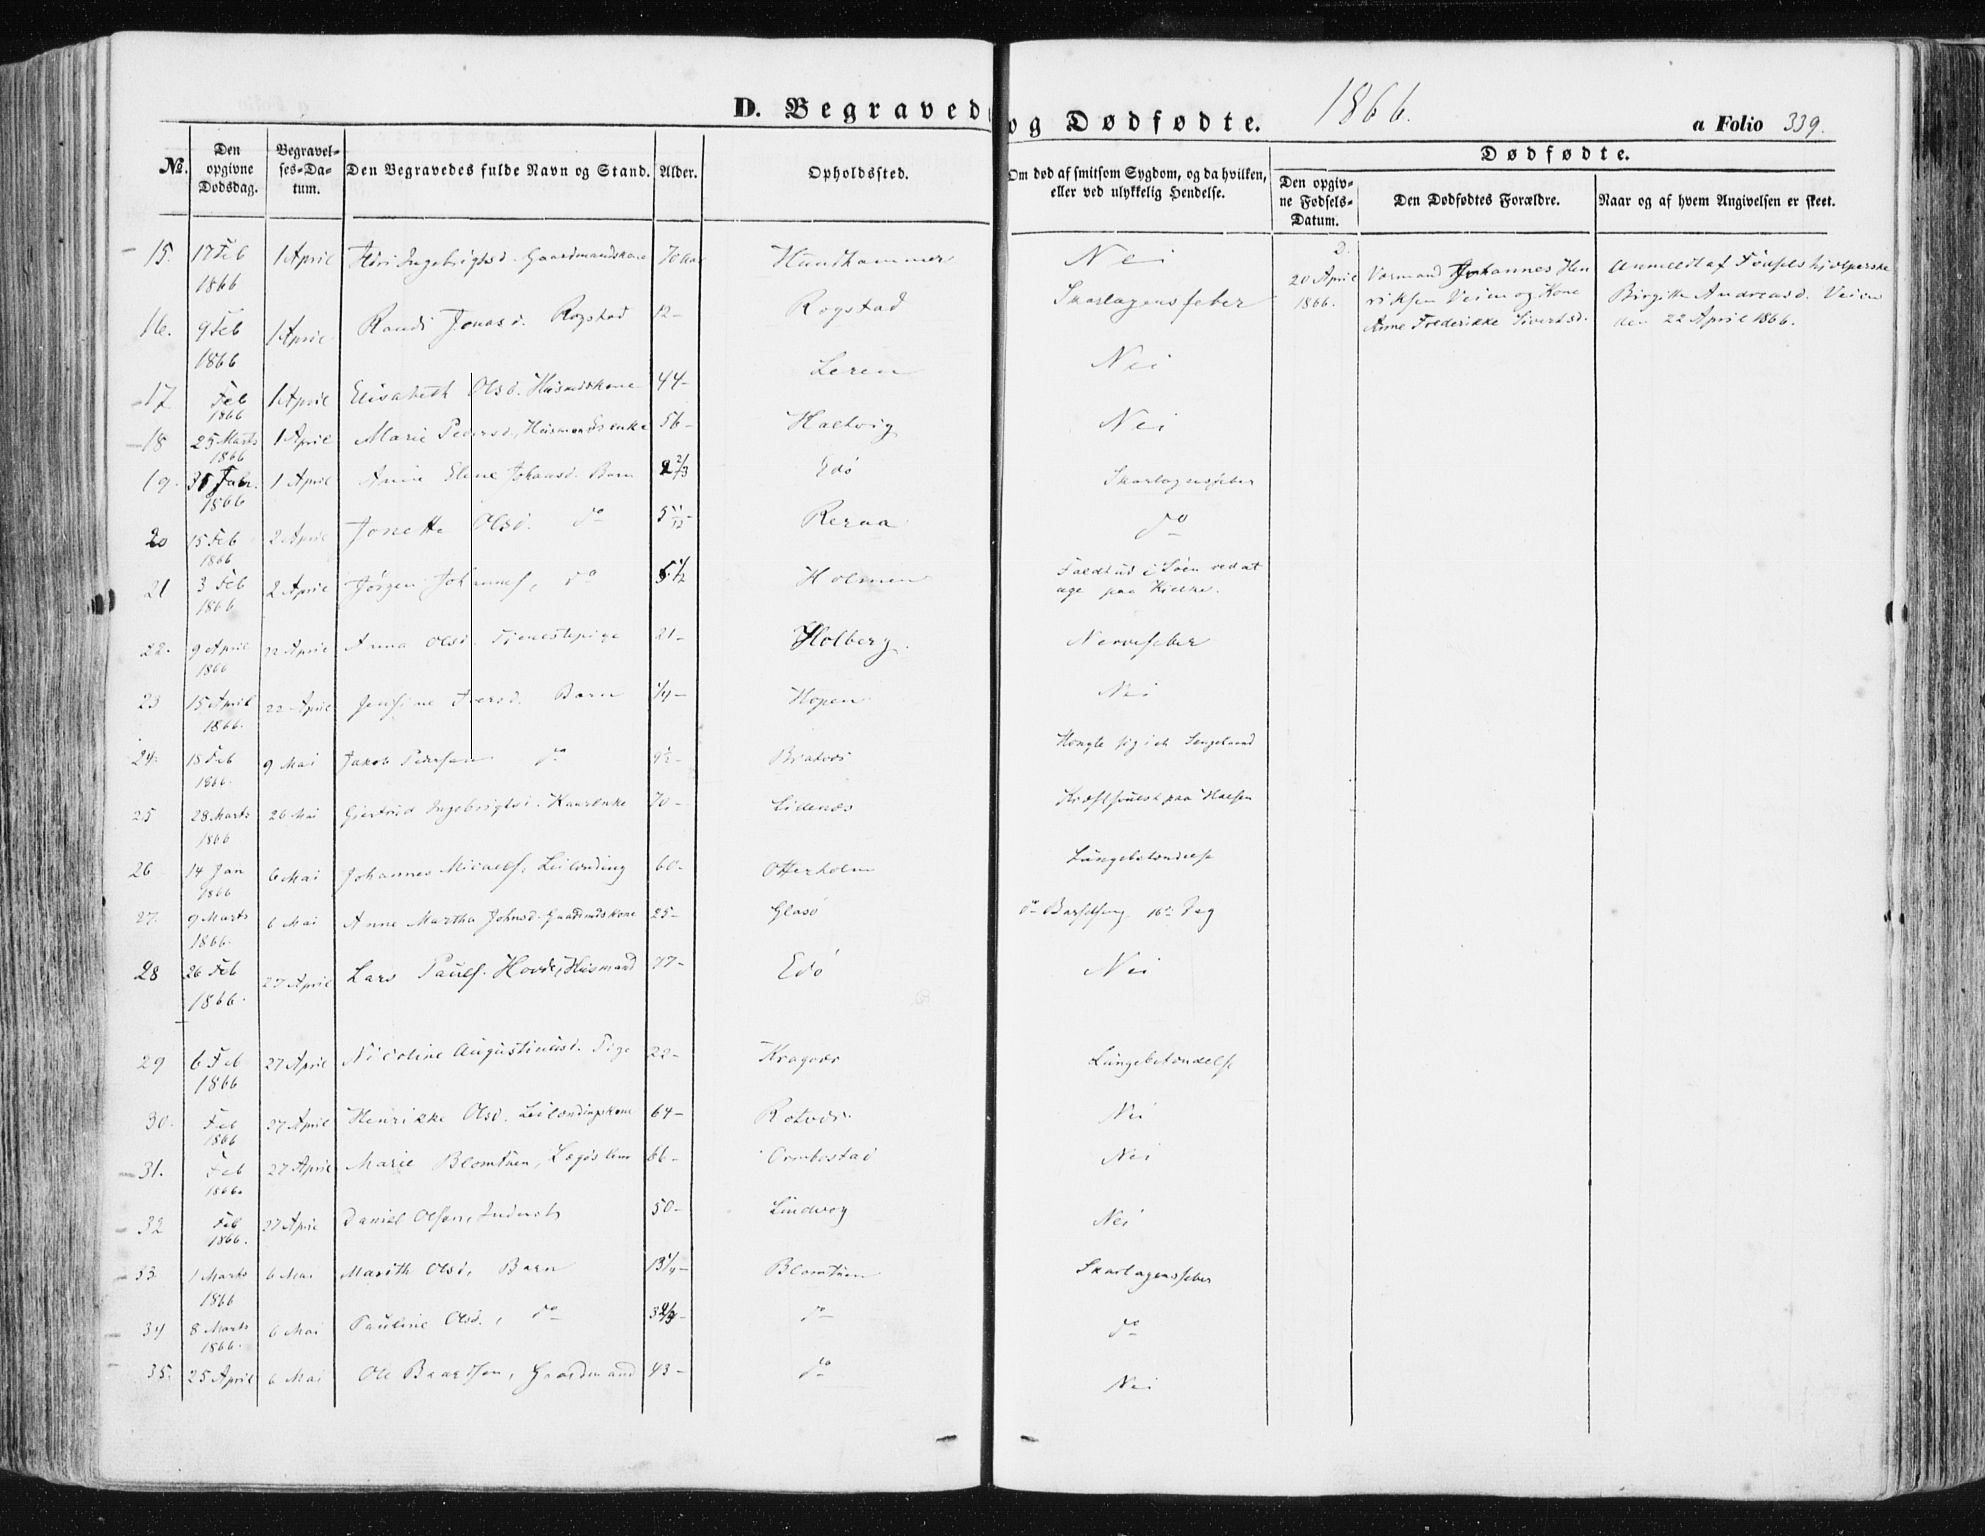 D. Begravede og Dødfødte. 1866. a Folio 339.
No. | Den opgivne Dødsdag. | Begravelses-Datum. | Den Begravedes fulde Navn og Stand. | Alder. | Opholdssted. | Om død af smitsom Sygdom, og da hvilken, eller ved ulykkelig Hendelse.
Dødfødte.
Den opgivne Fødsels-Datum. | Den Dødfødtes Forældre. | Naar og af hvem Angivelsen er skeet.
15. 17 Feb 1866 1 April Ingebrigtsd. Gaardmandskone 70 Aar Hundhammer Nei
16. 9 Feb 1866 1 April Randi Jonasd. Rogstad 12- Rogstad Skarlagensfeber
17 Feb 1866 1 April Elisabeth Olsd. Husmdskone 44- Leren Nei
18 25 Marts 1866 1 April Marie Pedersd., Husmandsenke 56- Haltvig Nei
19. 1866 1 April Anne Elene Johansd. Barn 2 2/3 Edø Skarlagensfeber
20 15 Feb 1866 2 April Jonette Olsd. do 5 Reraa do
21 3 Feb 1866 2 April Jørgen do 5 1/2 Holmen i Søen ved at age paa Kielke.
22. 9 April 1866 22 April Anna Olsd. Tjenestepige 21- Holberg Nervefeber
23 15 April 1866. 22 April Jensine Iversd. Barn 1/4- Hopen Nei
24. 18 Feb 1866. 9 Mai Jakob Pedersen do Bratvær Hængte sig i et Sengebaand
25 28 Marts 1866 26 Mai Gjertrud Ingebrigtsd. 70- Lidenæs Kræftsvulst paa Halsen
26 14 Jan 1866 6 Mai Johannes Micaels. Leilænding 60- Otterholm Lungebetændelse
27. 9 Marts 1866. 6 Mai Anne Martha Johnsd. Gaardmdskone 25- Glasø do Barselseng 16de Dag
28 26 Feb 1866. 27 April Lars Pauls. Hovde, Husmand 77- Edø Nei
29 6 Feb 1866 27 April Nicoline Augustinusd. Pige 22- Kragvær Lungebetændelse
30. Feb 1866 27 April Henrikke Olsd. Leilændingskone 64- Rotvær Nei
31. Feb 1866. 27 April Marie Blomtuen, Lægdslem 66- Ormbostad Nei
32 Feb 1866. 27 April Daniel Olsen, Inderst 50- Lindvog Nei
33. 1 Marts 1866 6 Mai Marith Olsd., Barn 13 1/4- Blomtuen Skarlagensfeber
34 8 Marts 1866. 6 Mai Pauline Olsd., do do do
35. 25 April 6 Mai Ole Baardsen, Gaardmand 43- do Nei
2.
20 April 1866. | Johannes Henriksen Veien og Kone Anne Frederikke Sivertsd. | Anmeldt af Fødselshjelperske Birgitte Andreasd. Veien den 22 April 1866.